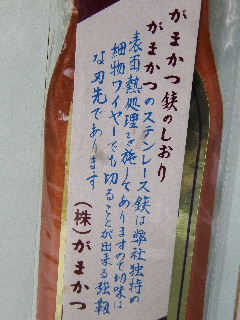 がまかつ鋏のしおり
がまかつのステンレース鋏は弊社独特の
表面熱処理を施してありますので切味は
細物ワイヤーでも切ることが出来る強靱
な刃先であります
(株)がまかつ